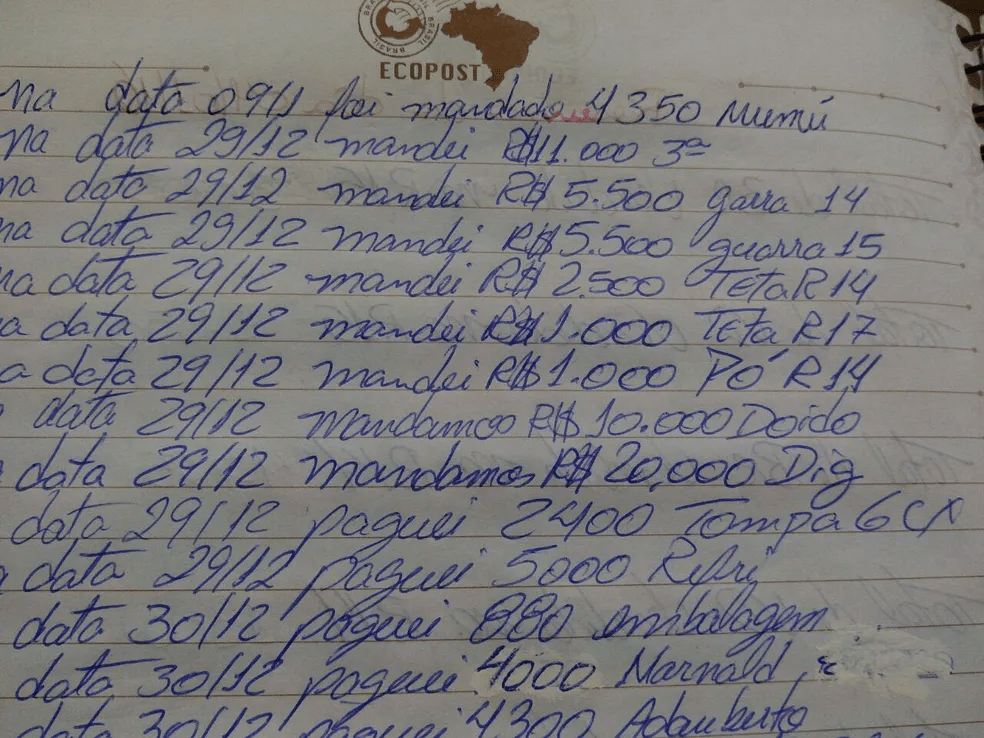 BRASIL
ECOPOST
na data 09/1 foi mandado 4350 Mumú
na data 29/12 mandei R$11.000 3ª
na data 29/12 mandei R$5.500 garra 14
na data 29/12 mandei R$5.500 guarra 15
na data 29/12 mandei R$2.500 Teta R14
a data 29/12 mandei R$1.000 Teta R17
a data 29/12 mandei R$1.000 Pó R14
data 29/12 mandamos R$10.000 Doido
data 29/12 mandamos R$20,000 Dig
data 29/12 paguei 2400 Tampa 6 cx
data 29/12 paguei 5000 Refri
data 30/12 paguei 880 embalagem
data 30/12 paguei 4000 Marnald
data 30/12 paguei 4300 Adauberto